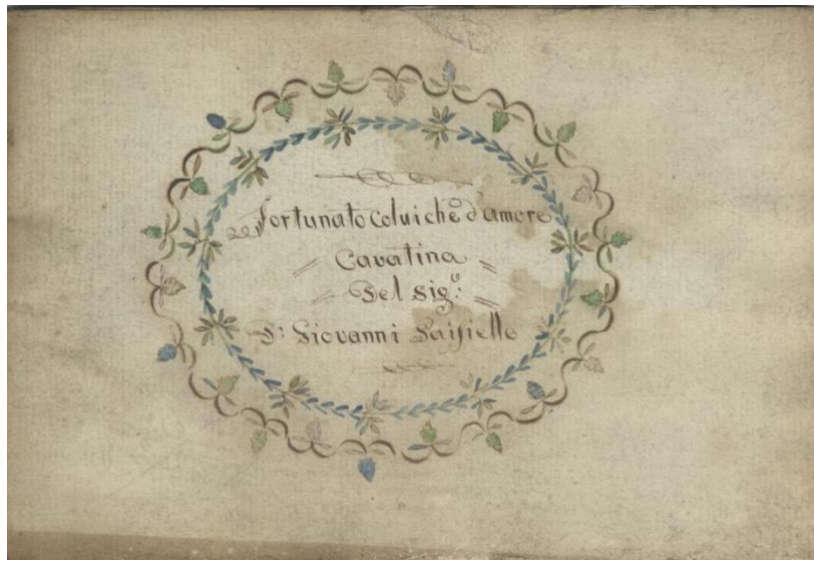 Fortunato colui che d'amore
Cavatina
Del Sig.º
D: Giovanni Paisiello